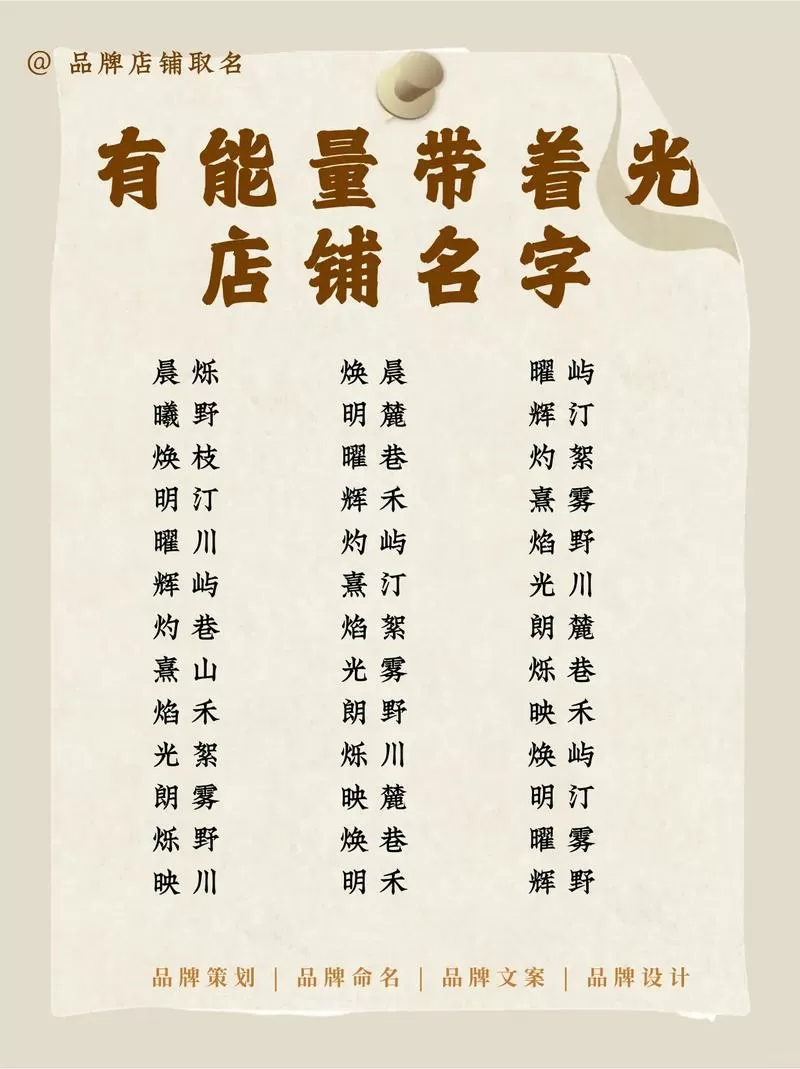 @ 品牌店铺取名
有能量带着光
店铺名字
晨烁 焕晨 曜屿
曦野 明麓 辉汀
焕枝 曜巷 灼絮
明汀 辉禾 熹雾
曜川 灼屿 焰野
辉屿 熹汀 光川
灼巷 焰絮 朗麓
熹山 光雾 烁巷
焰禾 朗野 映禾
光絮 烁川 焕屿
朗雾 映麓 明汀
烁野 焕巷 曜雾
映川 明禾 辉野
品牌策划 | 品牌命名 | 品牌文案 | 品牌设计